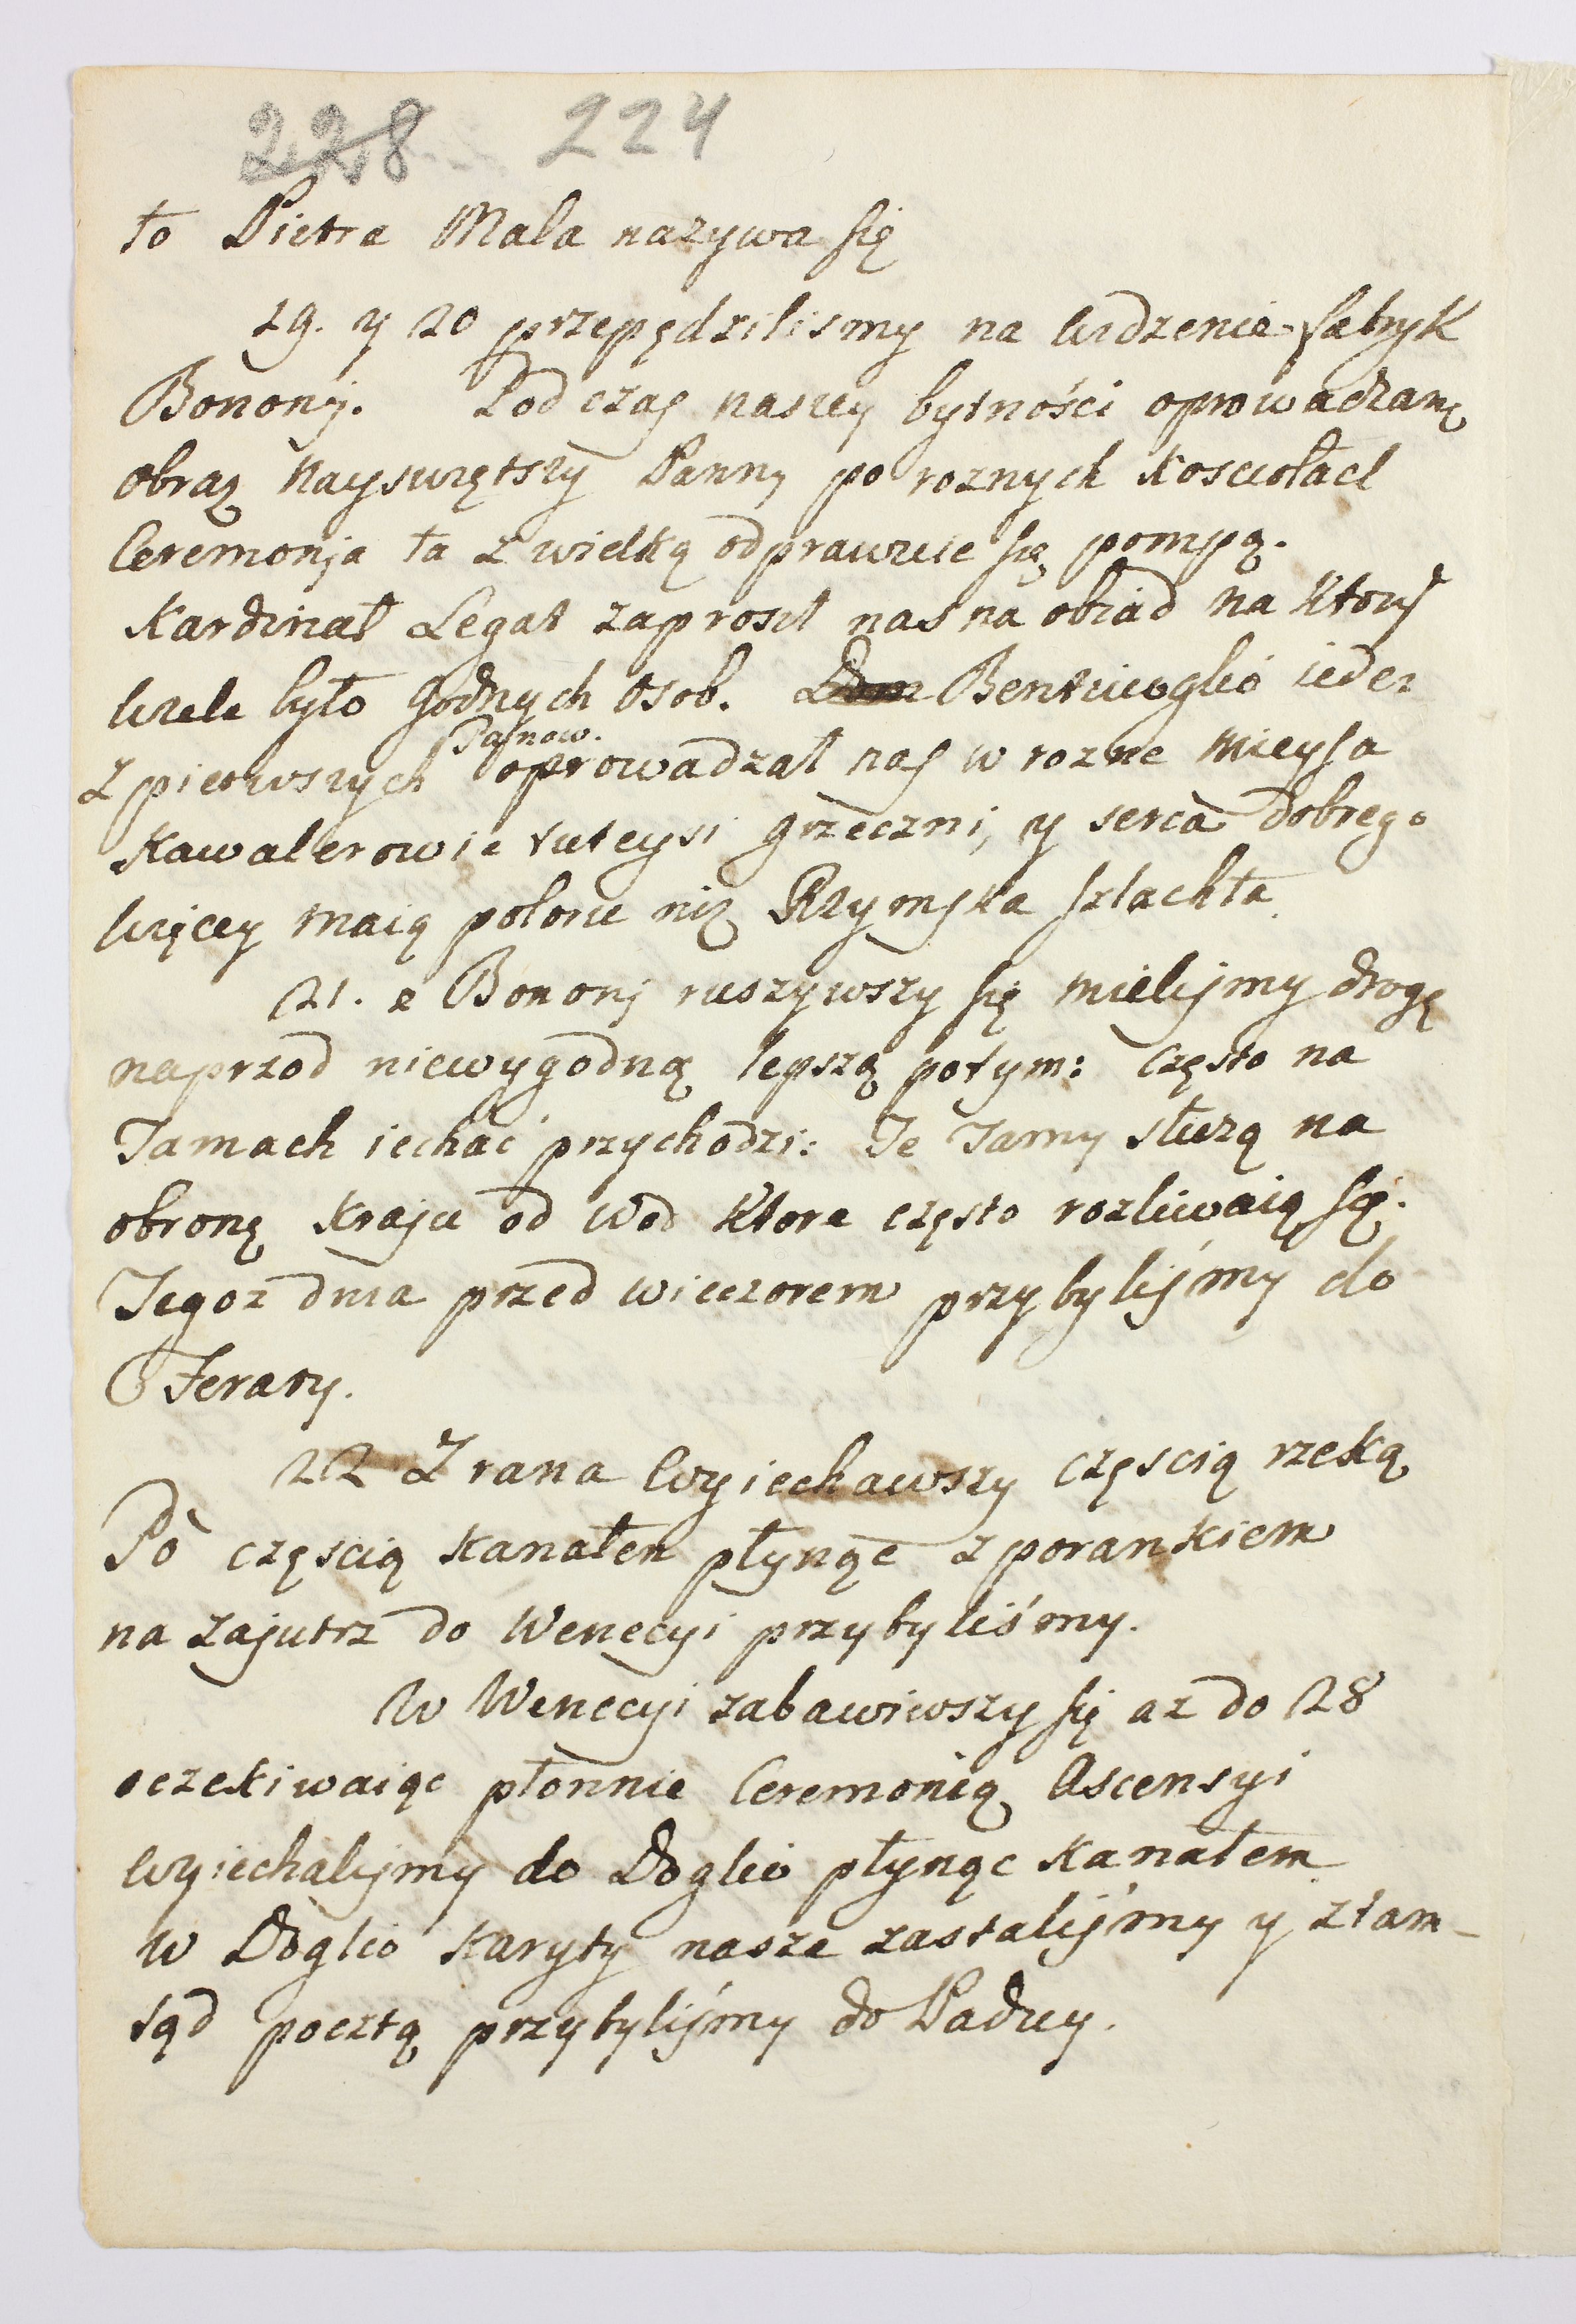 228 224
to Pietra Mala nazywa się
19. y 20 przepędzilismy na widzenie fabryk
Bononij. Podczas naszey bytności oprowadzano
obraz Nayswiętszy Panny po roznych Kosciołach
Ceremonja ta z wielką odprawuie się pompą.
Kardinał Legat zaprosił nas na obiad na Ktory
wiele było godnych osob. Dom Bentiuoglio ieden
z pierwszych Panow. oprowadzał nas w rozne mieysa
Kawalerowie tuteysi grzeczni, y serca dobrego
więcey maią polorie niz Rzymska szlachta
21. z Bononij ruszywszy się mielismy drogę
naprzod niewygodną lepszą potym: często na
Tamach iechać przychodzi: Te Tamy służą na
obronę Kraju od wod Ktore często rozliwaią się.
Tegoz dnia przed wieczorem przybylismy do
Ferary.
22 Z rana wyiechawszy częscią rzeką
Pò częscią Kanałem płynąc z porankiem
na zajutrz do Wenecyi przybyliśmy.
W Wenecyi zabawiwszy się az do 28
oczekiwaiąc płonnie Ceremonią Ascensyi
wyiechalismy do Doglio płynąc Kanałem
w Doglio Karyty nasze zastalismy y ztam-
tąd pocztą przybylismy do Paduy.